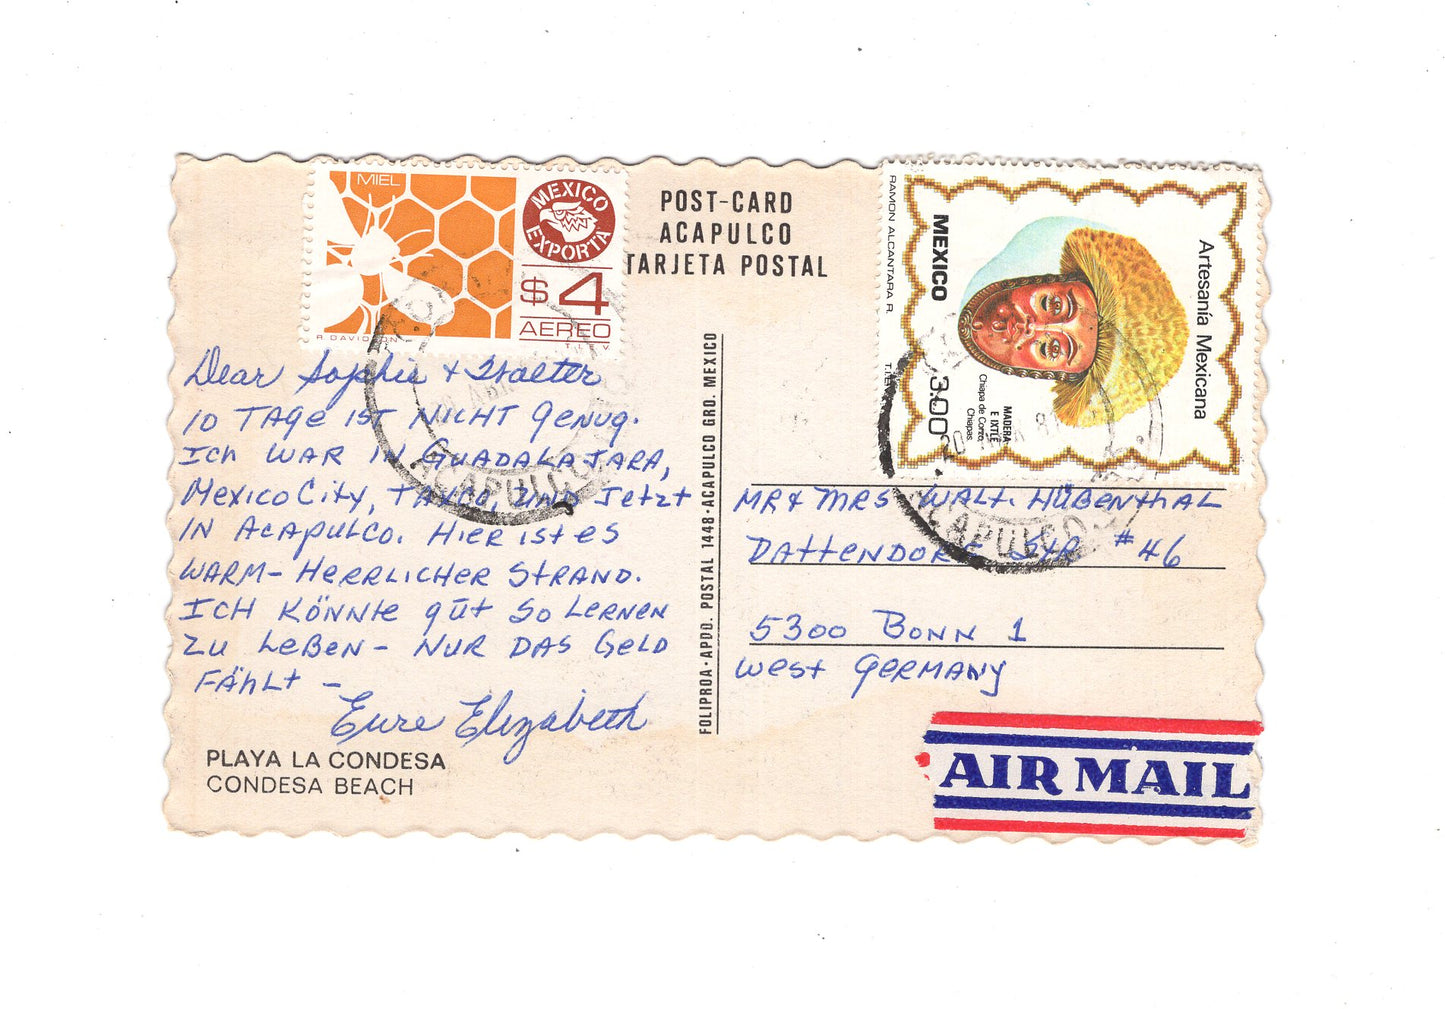 MIEL
MEXICO
EXPORTA
$4
AEREO
R. DAVIDSON
T.I.E.V.
POST-CARD
ACAPULCO
TARJETA POSTAL
RAMON ALCANTARA R.
MEXICO
3.00
T.I.E.V.
MADERA
E IXTLE
Chiapa de Corzo,
Chiapas.
Artesanía Mexicana
ACAPULCO
ACAPULCO
Dear Sophie + Walter
10 TAGE IST NICHT GENUG.
ICH WAR IN GUADALAJARA,
MEXICO CITY, TAXCO, UND JETZT
IN ACAPULCO. HIER IST ES
WARM- HERRLICHER STRAND.
ICH KÖNNTE GUT SO LERNEN
ZU LEBEN- NUR DAS GELD
FÄHLT -
Eure Elizabeth
PLAYA LA CONDESA
CONDESA BEACH
FOLIPROA·APDO. POSTAL 1448·ACAPULCO GRO. MEXICO
MR & MRS WALT. HÜBENTHAL
DATTENDORF STR #46
5300 BONN 1
WEST GERMANY
AIR MAIL